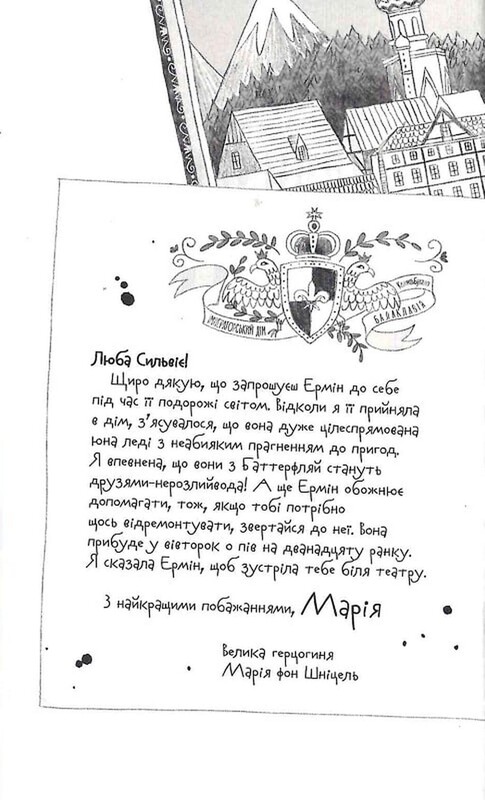 БАЛАКЛАВІЯ
Люба Сильвіє!
Щиро дякую, що запрошуєш Ермін до себе
під час її подорожі світом. Відколи я її прийняла
в дім, з’ясувалося, що вона дуже цілеспрямована
юна леді з неабияким прагненням до пригод.
Я впевнена, що вони з Баттерфляй стануть
друзями-нерозлийвода! А ще Ермін обожнює
допомагати, тож, якщо тобі потрібно
щось відремонтувати, звертайся до неї. Вона
прибуде у вівторок о пів на дванадцяту ранку.
Я сказала Ермін, щоб зустріла тебе біля театру.
З найкращими побажаннями, Марія
Велика герцогиня
Марія фон Шніцель